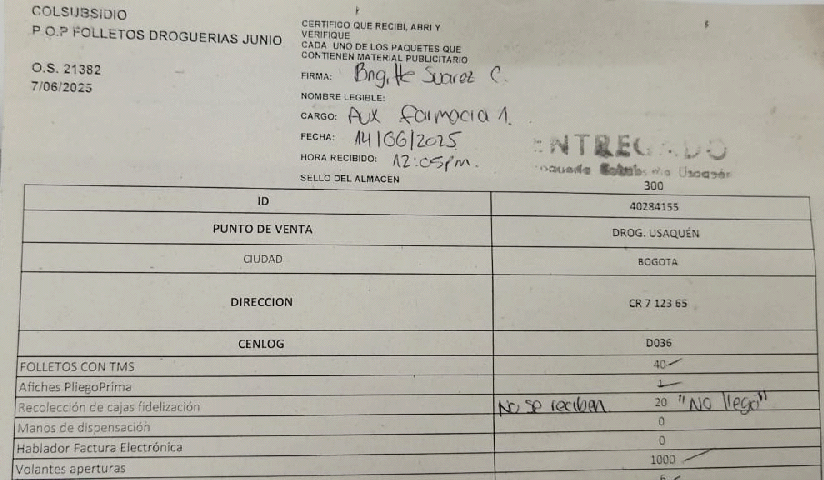 COLSUBSIDIO
P.O.P FOLLETOS DROGUERIAS JUNIO
O.S. 21382
7/06/2025
CERTIFICO QUE RECIBI, ABRI Y
VERIFIQUE
CADA UNO DE LOS PAQUETES QUE
CONTIENEN MATERIAL PUBLICITARIO
FIRMA: Brigitte Suarez C.
NOMBRE LEGIBLE:
CARGO: Aux farmacia 1.
FECHA: 14/06/2025
HORA RECIBIDO: 12:05pm.
SELLO DEL ALMACEN
ENTREGADO
Usaquén
300
ID 40284155
PUNTO DE VENTA DROG. USAQUÉN
CIUDAD BOGOTA
DIRECCION CR 7 123 65
CENLOG D036
FOLLETOS CON TMS 40
Afiches PliegoPrima 1
Recolección de cajas fidelización No se reciben 20 "No llego"
Manos de dispensación 0
Hablador Factura Electrónica 0
Volantes aperturas 1000